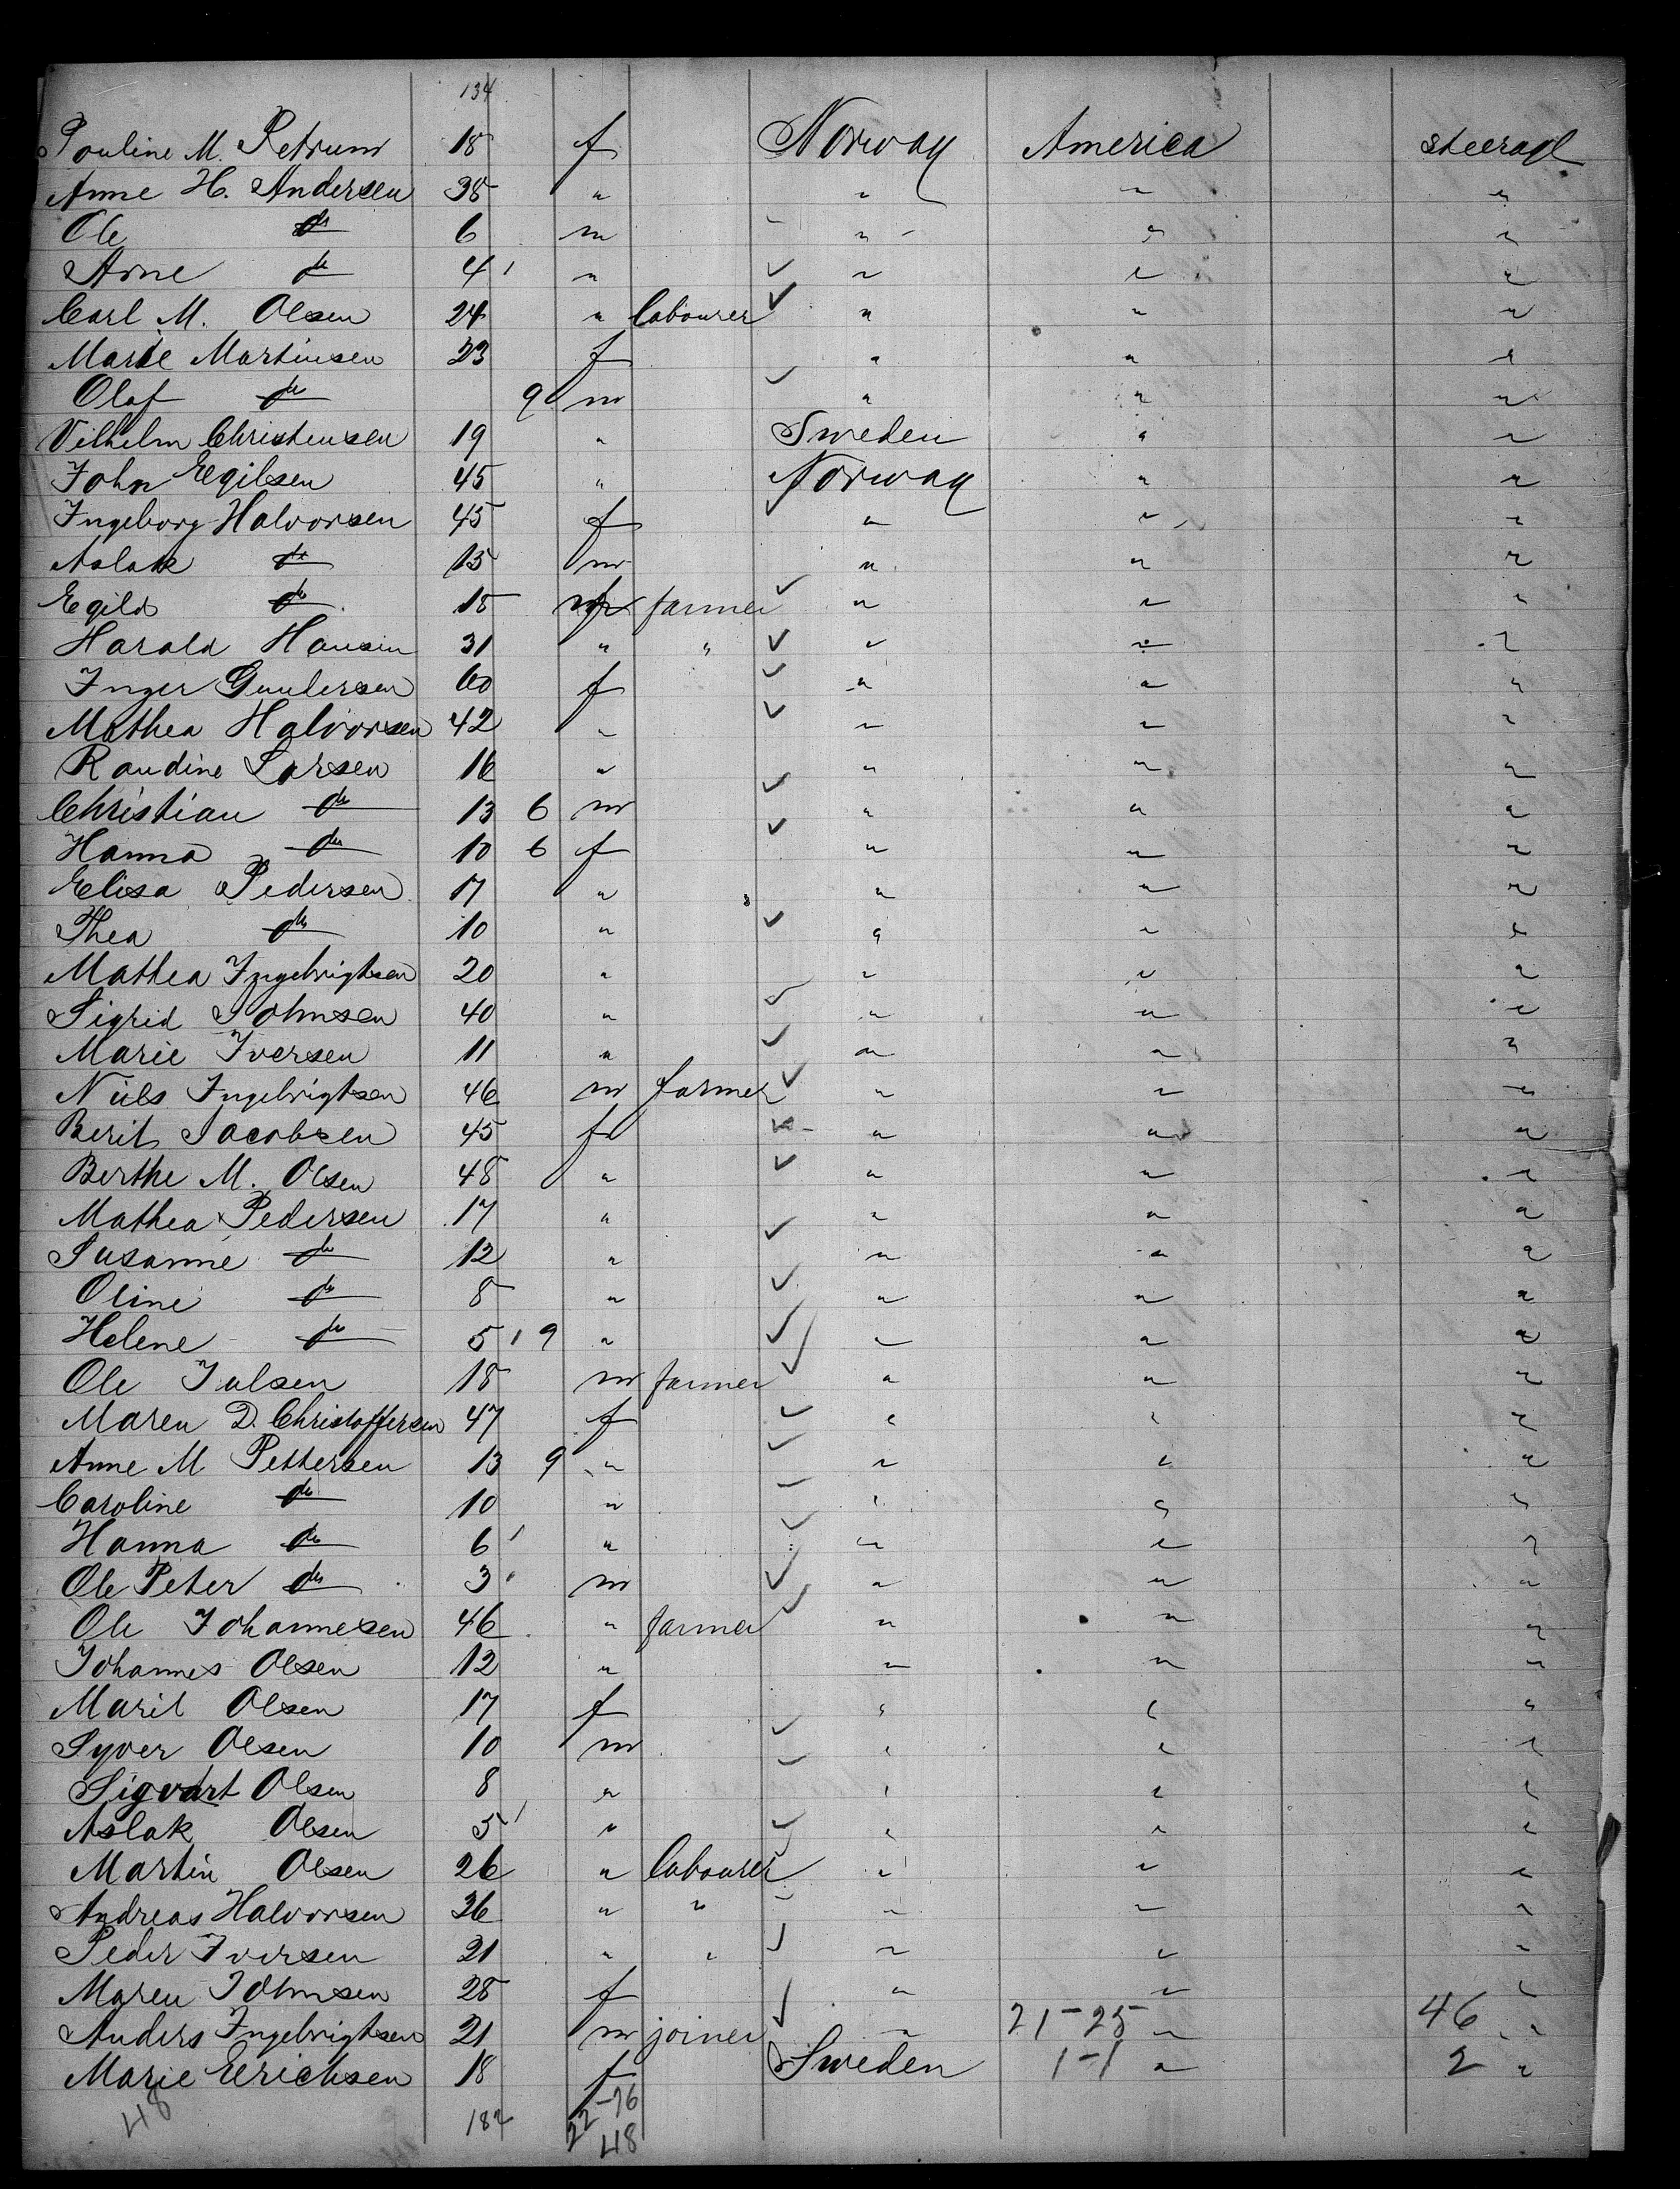 134
Pouline M. Petrum 18 f Norway America steerage
Anne H. Andersen 38 " " " "
Ole do 6 m " " "
Arne do 4 ' " " " "
Carl M. Olsen 24 " labourer " " "
Marie Martinsen 23 f " " "
Olaf do 9 m " " "
Vilhelm Christensen 19 " Sweden " "
John Egilsen 45 " Norway " "
Ingeborg Halvorsen 45 f " " "
Aslak do 15 m " " "
Egild do 18 m farmer " " "
Harald Hansen 31 " " " " "
Inger Gundersen 60 f " " "
Mathea Halvorsen 42 " " " "
Randine Larsen 16 " " " "
Christian do 13 6 m " " "
Hanna do 10 6 f " " "
Elisa Pedersen 17 " " " "
Thea do 10 " " " "
Mathea Ingebrigtsen 20 " " " "
Sigrid Johnsen 40 " " " "
Marie Iversen 11 " " " "
Niels Ingebrigtsen 46 m farmer " " "
Berit Jacobsen 45 f " " "
Berthe M. Olsen 48 " " " "
Mathea Pedersen 17 " " " "
Susanne do 12 " " " "
Oline do 8 " " " "
Helene do 5 ' 9 " " " "
Ole Julsen 18 m farmer " " "
Maren D. Christoffersen 47 f " " "
Anne M Pettersen 13 9 " " " "
Caroline do 10 " " " "
Hanna do 6 ' " " " "
Ole Peter do 3 ' m " " "
Ole Johannesen 46 " farmer " " "
Johannes Olsen 12 " " " "
Marit Olsen 17 f " " "
Syver Olsen 10 m " " "
Sigvart Olsen 8 " " " "
Aslak Olsen 5 ' " " " "
Martin Olsen 26 " labourer " " "
Andreas Halvorsen 36 " " " " "
Peder Iversen 21 " " " " "
Maren Johnsen 28 f " " "
Anders Ingebrigtsen 21 m joiner " 21-25 " 46 "
Marie Erichsen 18 f Sweden 1-1 " 2 "
48 182 22-26
48